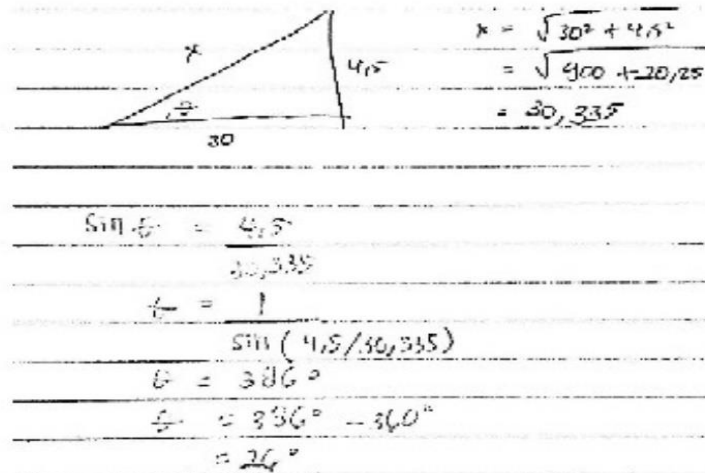 x
θ
4,5
30
x = √30² + 4,5²
= √900 + 20,25
= 30,335
sin θ = 4,5
30,335
θ = 1
sin (4,5/30,335)
θ = 386°
θ = 386° - 360°
= 26°